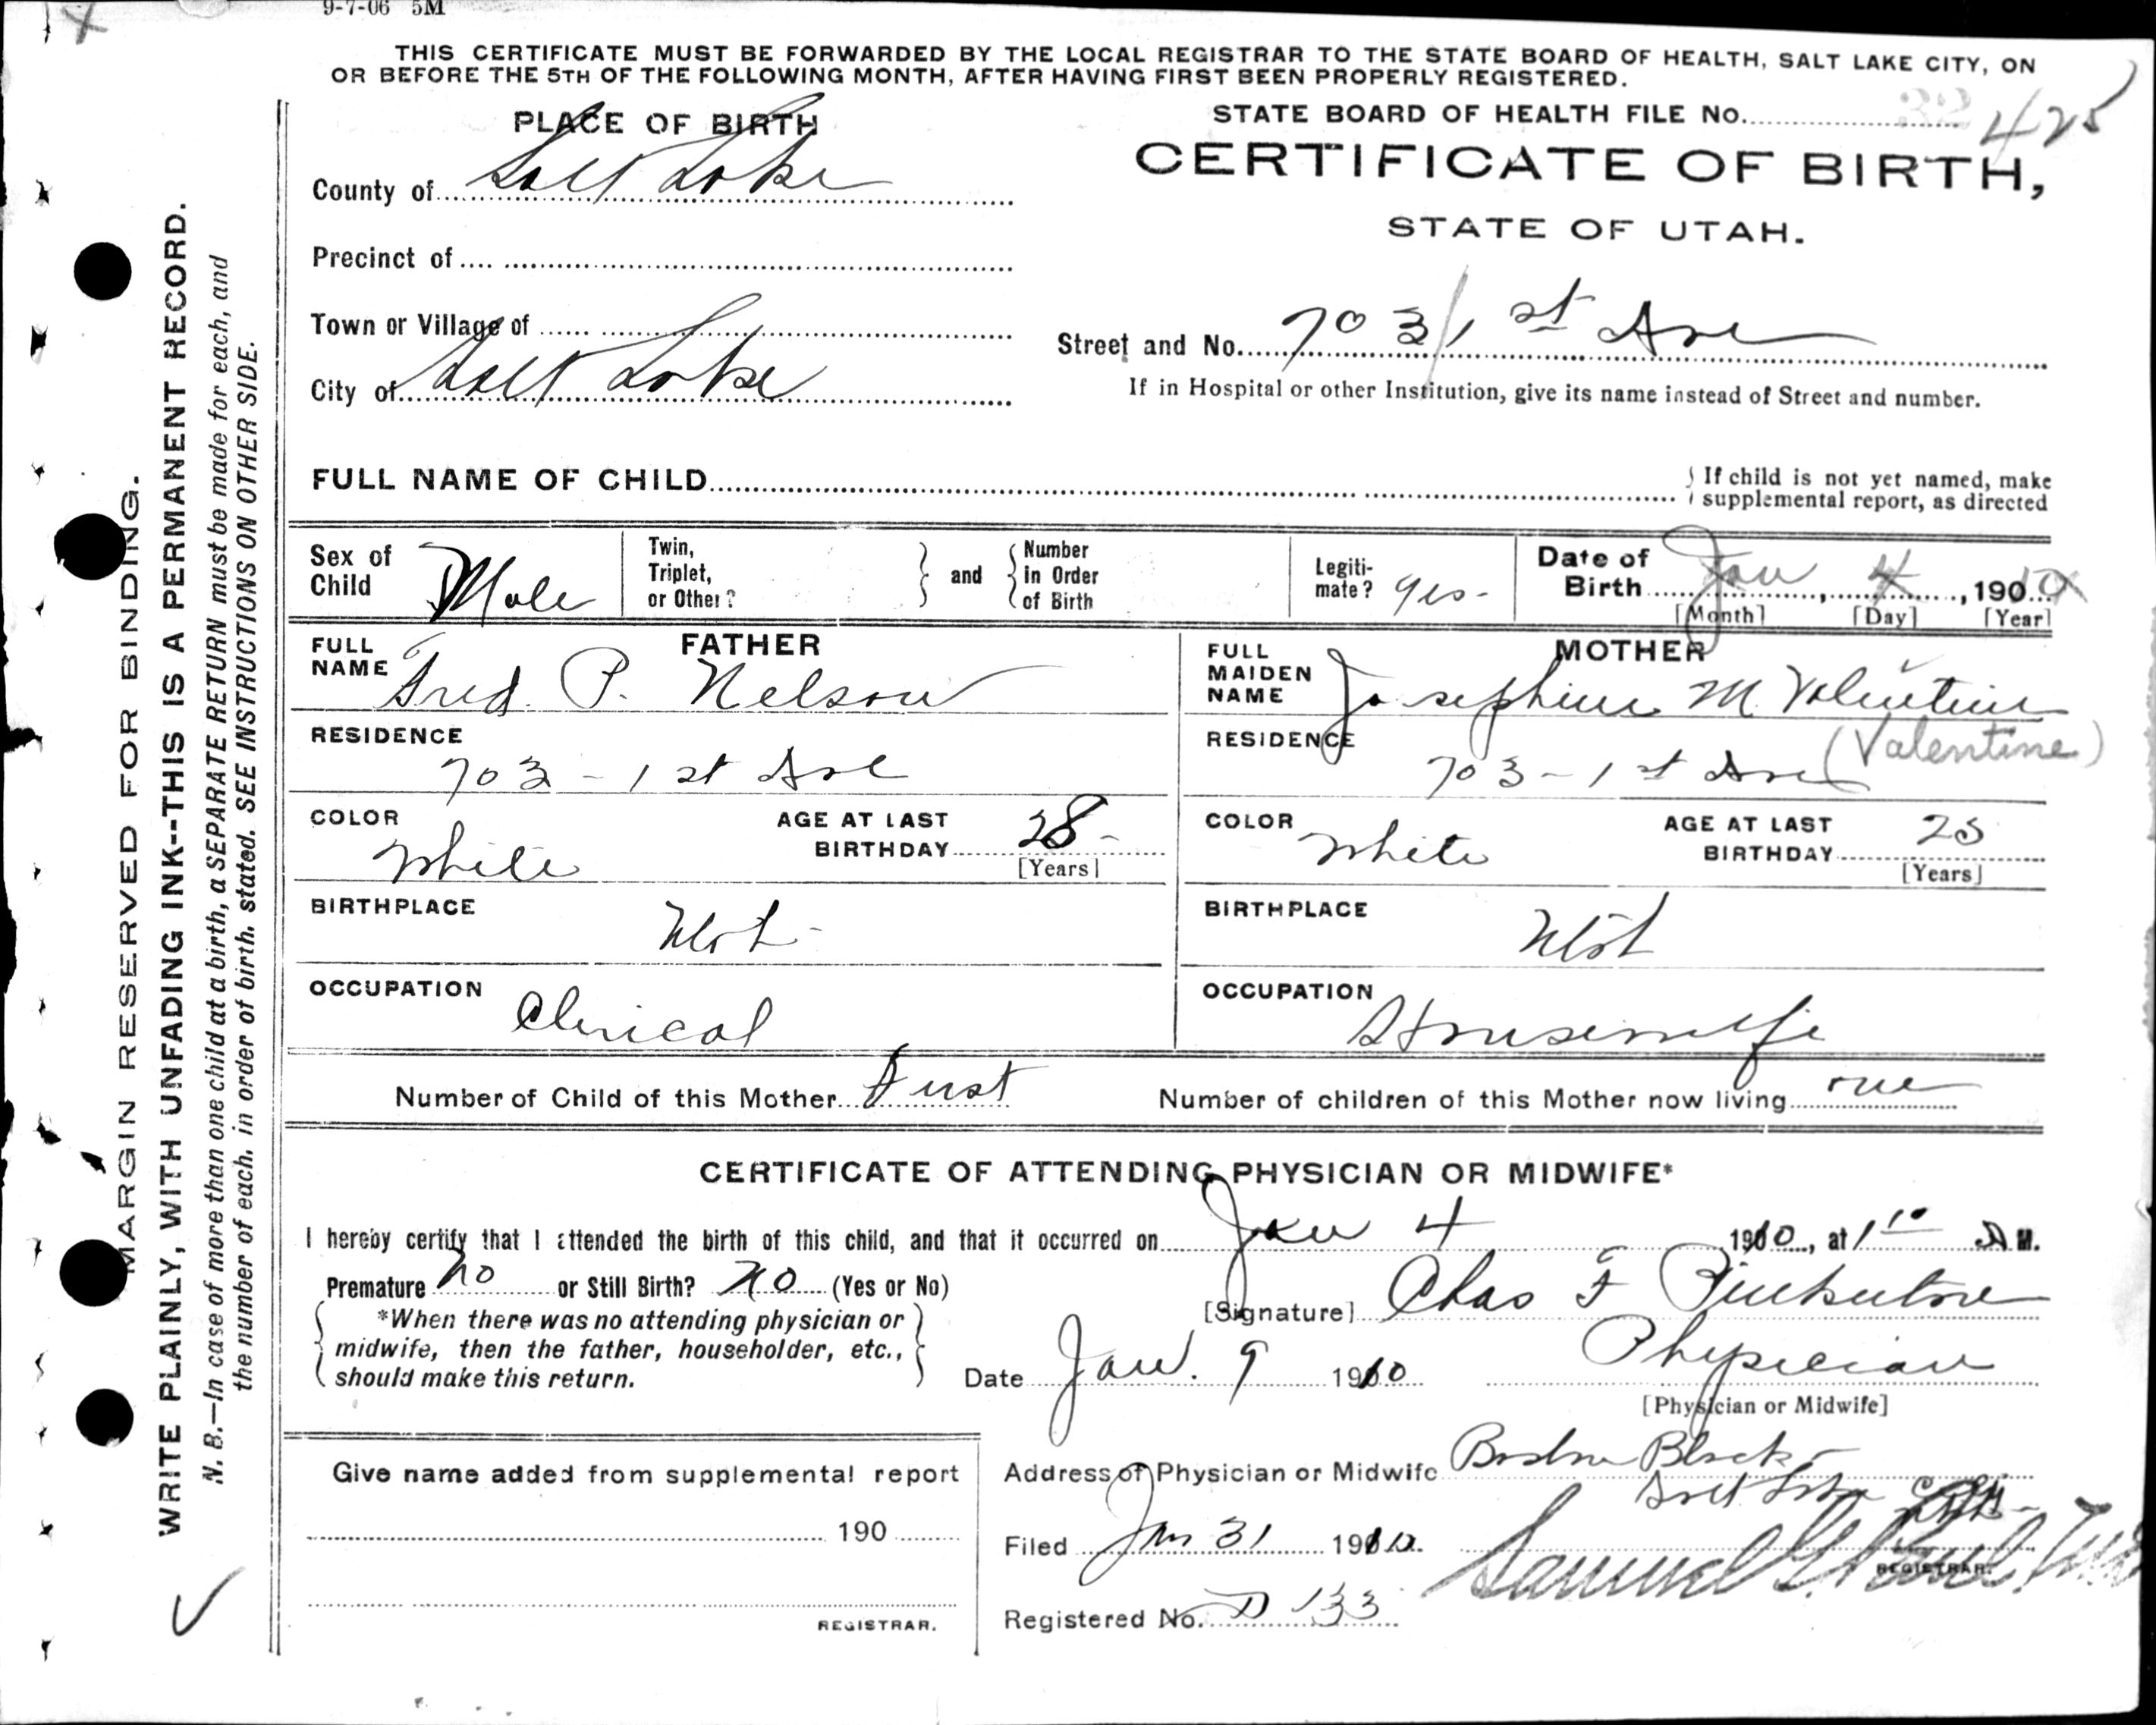 9-7-06 5M
THIS CERTIFICATE MUST BE FORWARDED BY THE LOCAL REGISTRAR TO THE STATE BOARD OF HEALTH, SALT LAKE CITY, ON
OR BEFORE THE 5TH OF THE FOLLOWING MONTH, AFTER HAVING FIRST BEEN PROPERLY REGISTERED.
PLACE OF BIRTH
STATE BOARD OF HEALTH FILE No. 32 425
CERTIFICATE OF BIRTH,
STATE OF UTAH.
County of Salt Lake
Precinct of
Town or Village of
City of Salt Lake
Street and No. 703 / 1st Ave
If in Hospital or other Institution, give its name instead of Street and number.
FULL NAME OF CHILD
If child is not yet named, make
supplemental report, as directed
Sex of Child Male
Twin, Triplet, or Other?
and
Number in Order of Birth
Legiti-mate? yes-
Date of Birth Jan 4, 1910
[Month] [Day] [Year]
FATHER
FULL NAME Fred. P. Nelson
RESIDENCE
703 - 1st Ave
COLOR White
AGE AT LAST BIRTHDAY 28-
[Years]
BIRTHPLACE Utah
OCCUPATION Clerical
MOTHER
FULL MAIDEN NAME Josephine M. Valentine
(Valentine)
RESIDENCE
703-1st Ave
COLOR White
AGE AT LAST BIRTHDAY 25
[Years]
BIRTHPLACE Utah
OCCUPATION Housewife
Number of Child of this Mother First
Number of children of this Mother now living one
CERTIFICATE OF ATTENDING PHYSICIAN OR MIDWIFE*
I hereby certify that I attended the birth of this child, and that it occurred on Jan 4 1910, at 1 10 A M.
Premature No or Still Birth? No (Yes or No)
*When there was no attending physician or
midwife, then the father, householder, etc.,
should make this return.
[Signature] Chas F
Physician
[Physician or Midwife]
Date Jan. 9 1910
Give name added from supplemental report
190
REGISTRAR.
Address of Physician or Midwife Boston Block
Salt Lake
Filed Jan 31 1910.
Samuel G. Paul
REGISTRAR.
Registered No. D 133
MARGIN RESERVED FOR BINDING.
WRITE PLAINLY, WITH UNFADING INK--THIS IS A PERMANENT RECORD.
N. B.—In case of more than one child at a birth, a SEPARATE RETURN must be made for each, and
the number of each, in order of birth, stated. SEE INSTRUCTIONS ON OTHER SIDE.